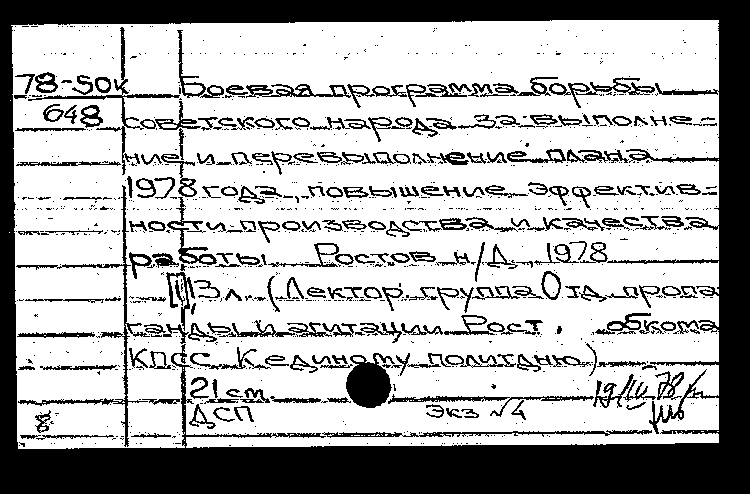 78-50к Боевая программа борьбы
648 советского народа за выполне-
ние и перевыполнение плана
1978 года, повышение эффектив-
ности производства и качества
работы. Ростов н/Д, 1978
[1], 13 л. (Лектор. группа Отд. пропа
ганды и агитации Рост. обкома
КПСС К единому политдню)
21 см.
ДСП Экз №4 19/IV 78